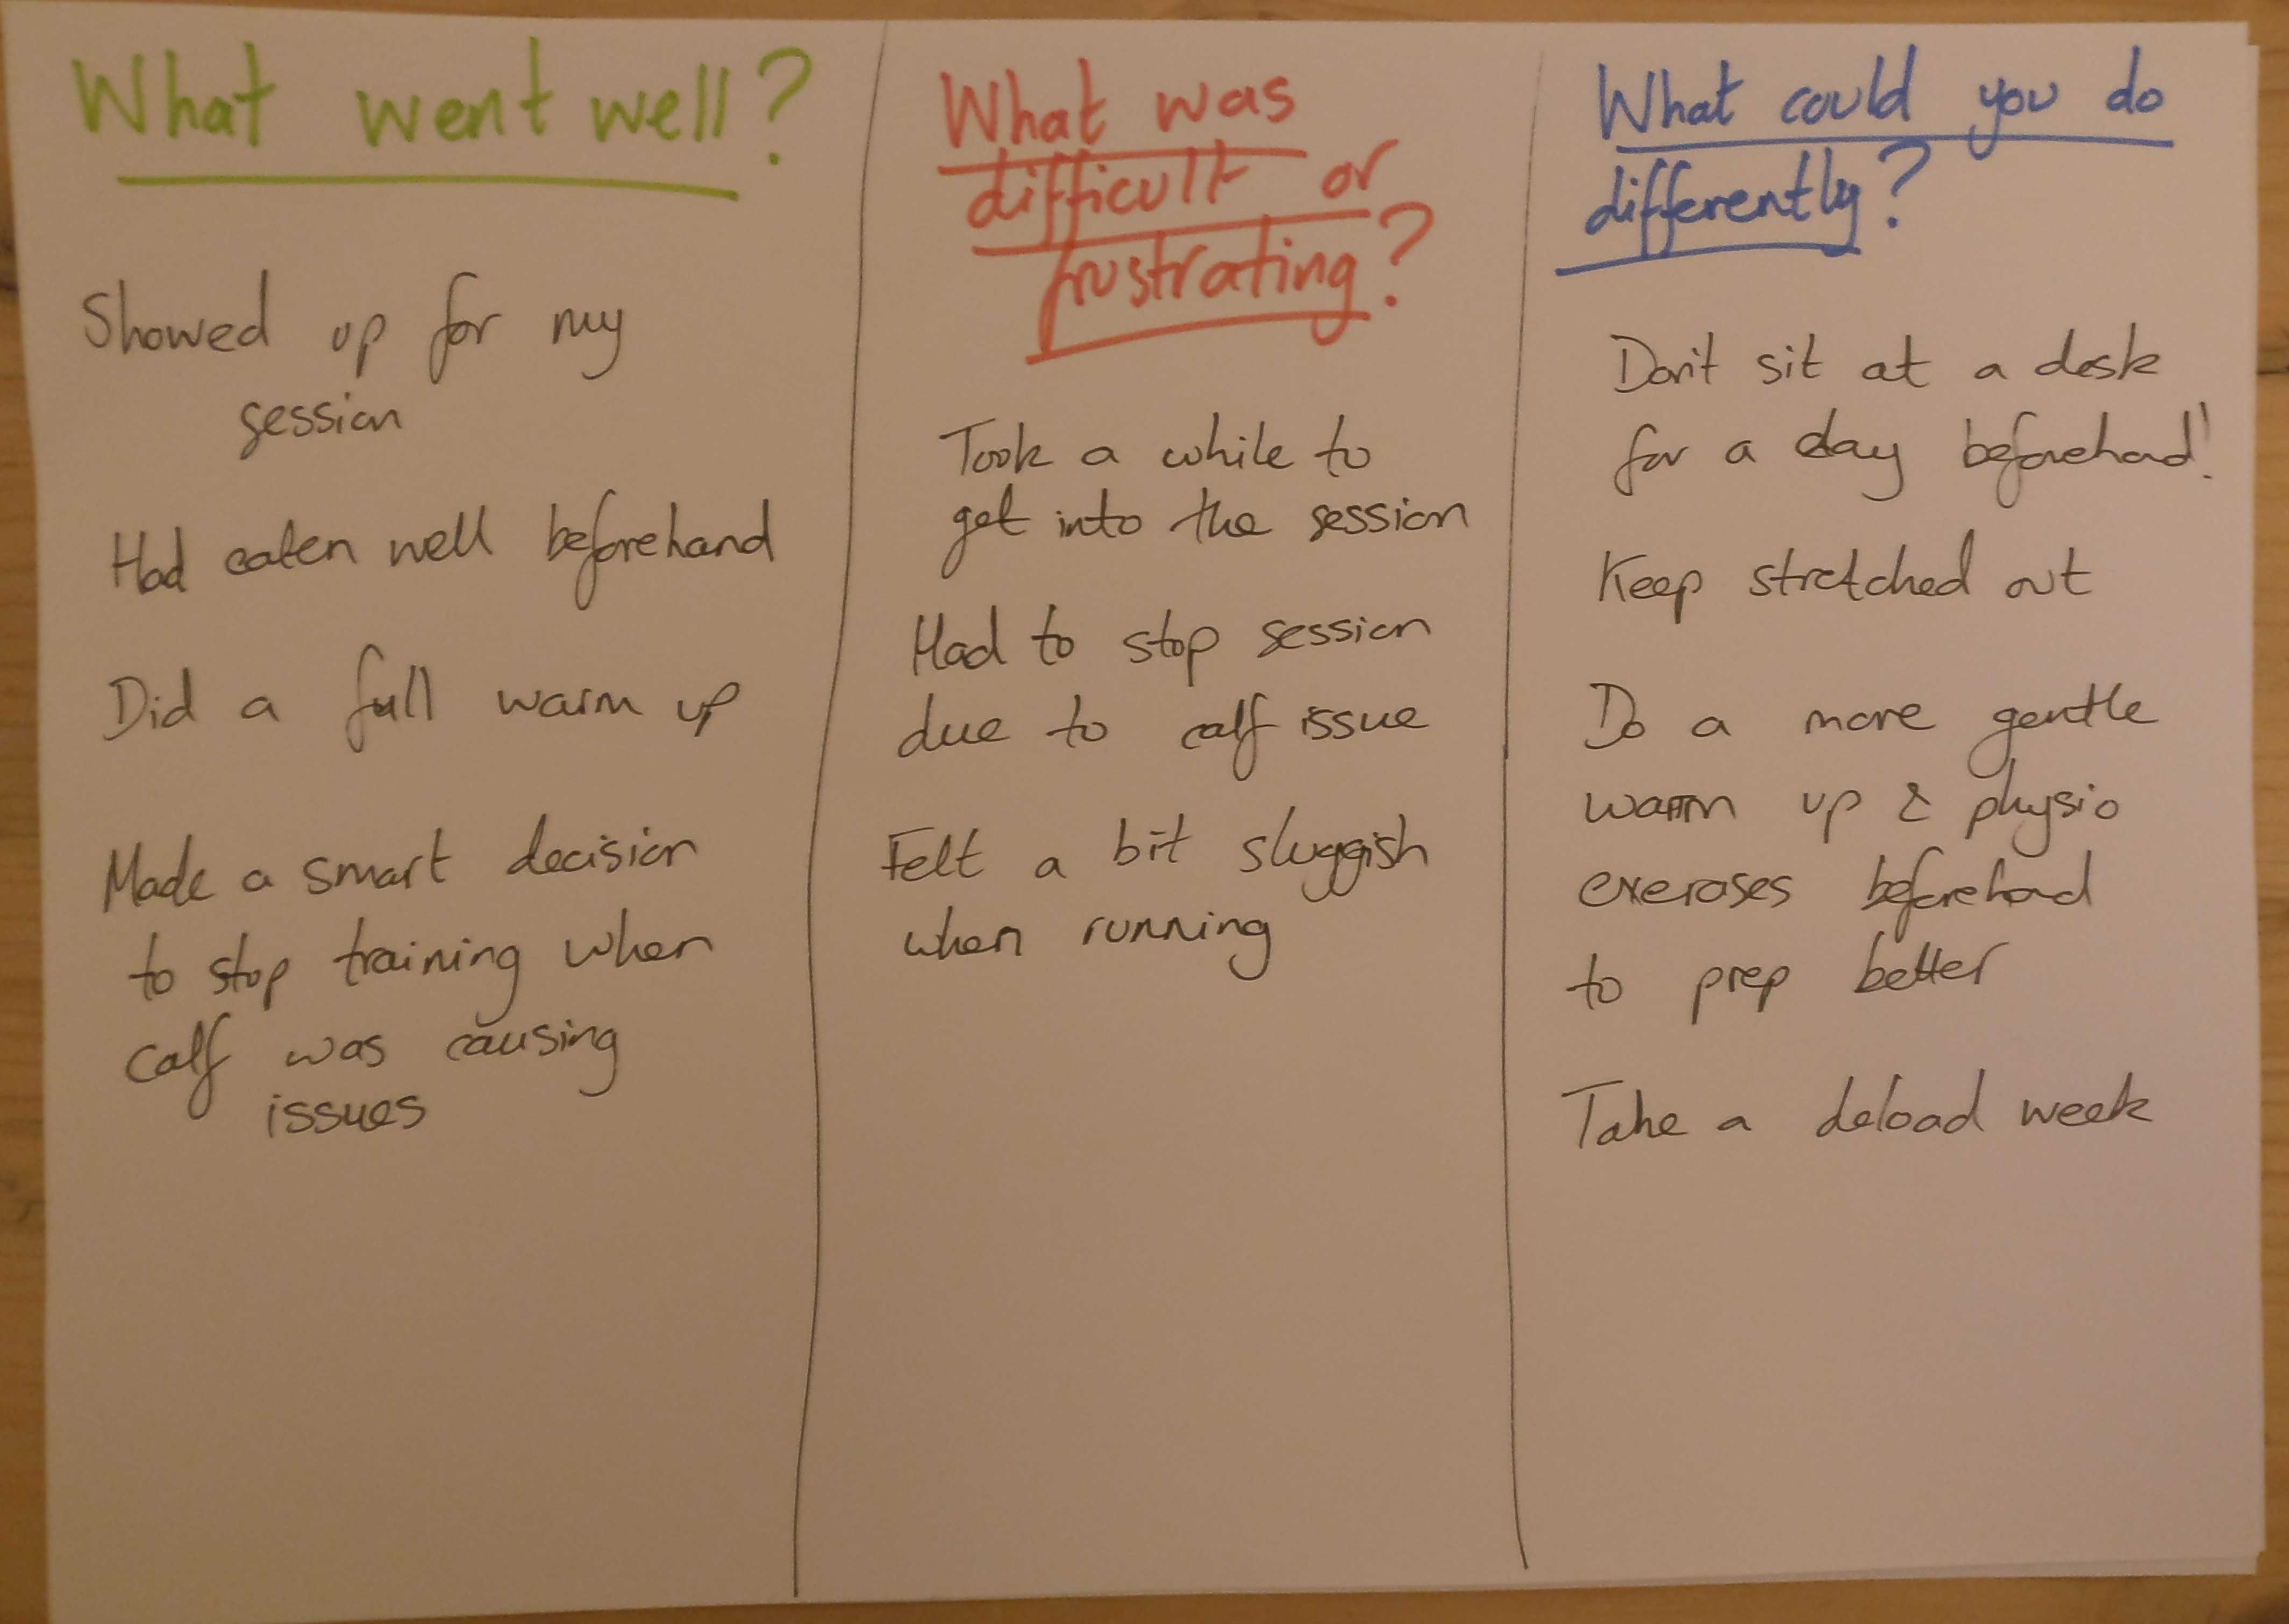 What went well?
Showed up for my
session
Had eaten well beforehand
Did a full warm up
Made a smart decision
to stop training when
calf was causing
issues
What was
difficult or
frustrating?
Took a while to
get into the session
Had to stop session
due to calf issue
Felt a bit sluggish
when running
What could you do
differently?
Don't sit at a desk
for a day beforehand!
Keep stretched out
Do a more gentle
warm up & physio
exercises beforehand
to prep better
Take a deload week